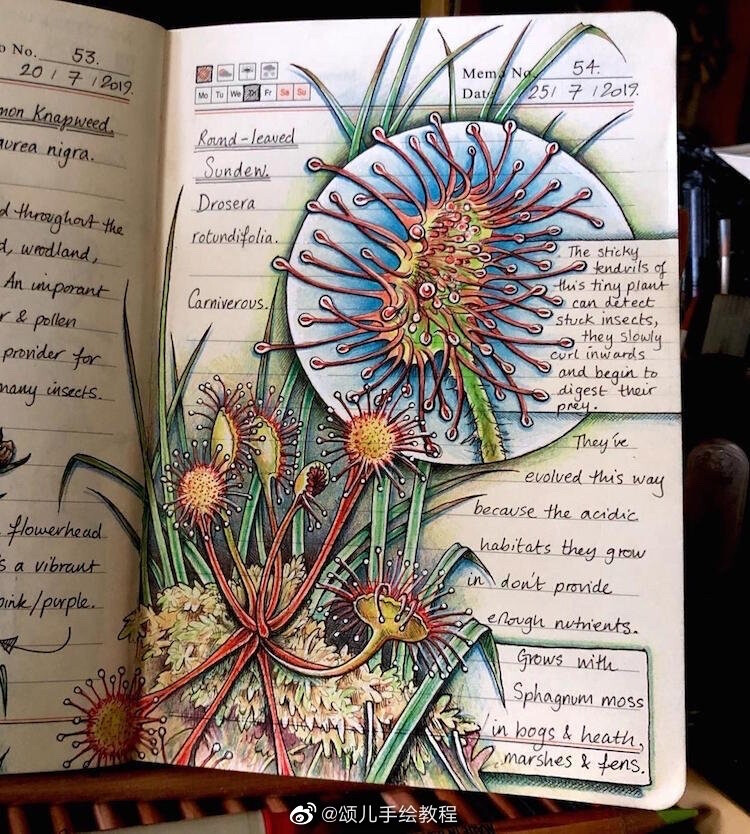 o No. 53.
20 / 7 / 2019.
mon Knapweed,
aurea nigra.
d throughout the
d, wrodland,
An imporant
r & pollen
provider for
many insects.
flowerhead
s a vibrant
pink/purple.
Memo No. 54.
Date 25 / 7 / 2019.
Mo Tu We Th Fr Sa Su
Round-leaved
Sundew.
Drosera
rotundifolia.
Carniverous.
The sticky
tendrils of
this tiny plant
can detect
stuck insects,
they slowly
curl inwards
and begin to
digest their
prey.
They've
evolved this way
because the acidic
habitats they grow
in don't provide
enough nutrients.
Grows with
Sphagnum moss
in bogs & heath,
marshes & fens.
@颂儿手绘教程